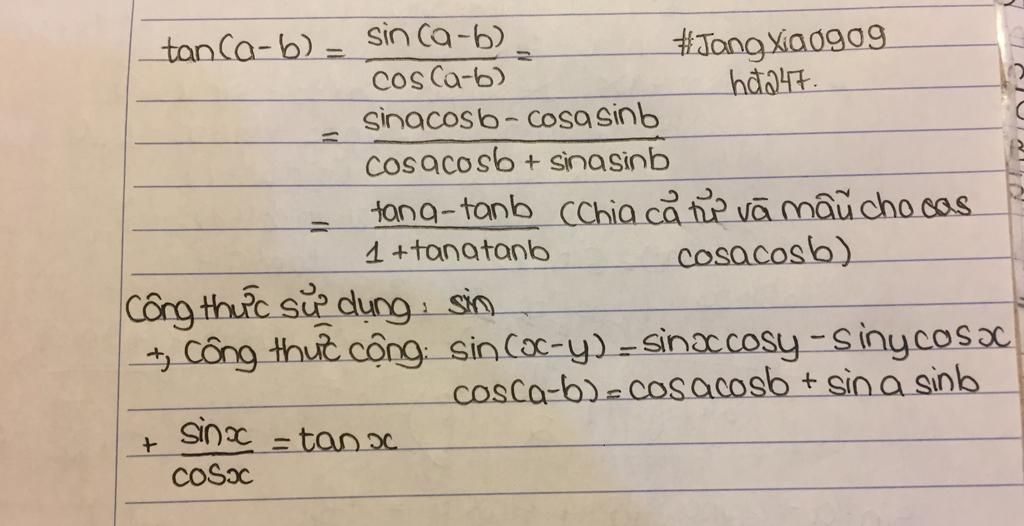 tan(a-b) = sin(a-b)/cos(a-b) = #JangXiao909
hđ247.
= sinacosb - cosasinb/cosacosb + sinasinb
= tana-tanb/1+tanatanb (Chia cả tử và mẫu cho cos
cosacosb)
Công thức sử dụng: sin
+, Công thức cộng: sin(x-y)=sinxcosy-sinycosx
cos(a-b)=cosacosb + sina sinb
+ sinx/cosx = tanx